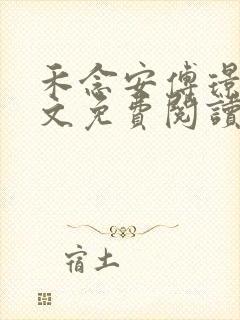 禾念安傅璟
文免費閱讀
宿土